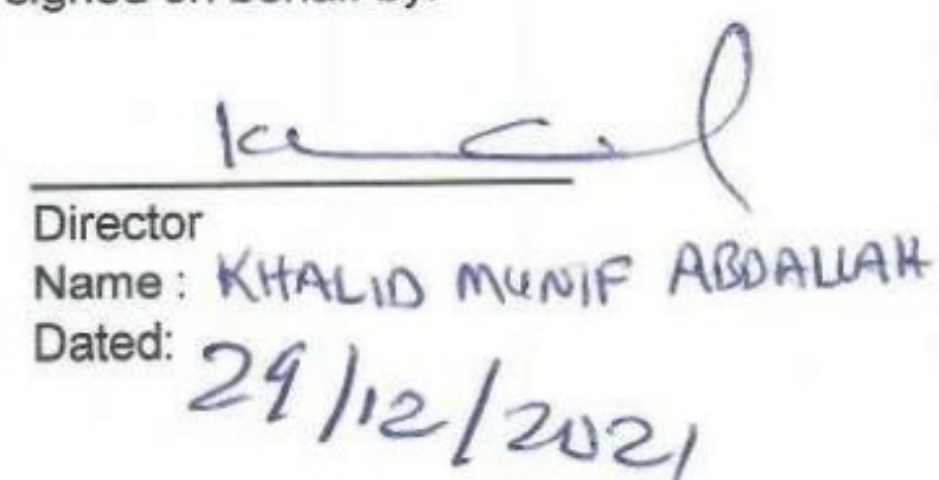 signed on behalf by:
Director
Name : KHALID MUNIF ABDALLAH
Dated: 29/12/2021